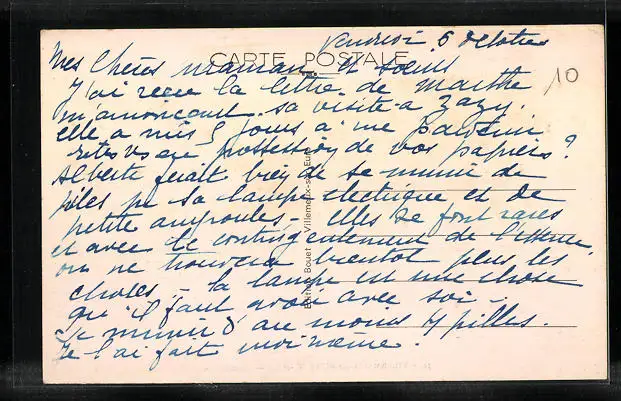 Vendredi 6 Octobre
CARTE POSTALE
10
Mes chères maman et soeurs
J'ai reçu la lettre de Marthe
m'annonçant sa visite à Zazy.
elle a mis 3 jours à me parvenir
êtes vs en possession de vos papiers ?
Alberte ferait bien de se munir de
piles pr sa lampe electrique et de
petite ampoules - Elles se font rares
et avec le contingentement de l'essence
on ne trouvera bientôt plus les
choses - la lampe est une chose
qu'il faut avoir avec soi -
Se munir d' au moins 4 pilles.
Je l'ai fait moi même.
Edition Bouet Villemeux-s-Eure